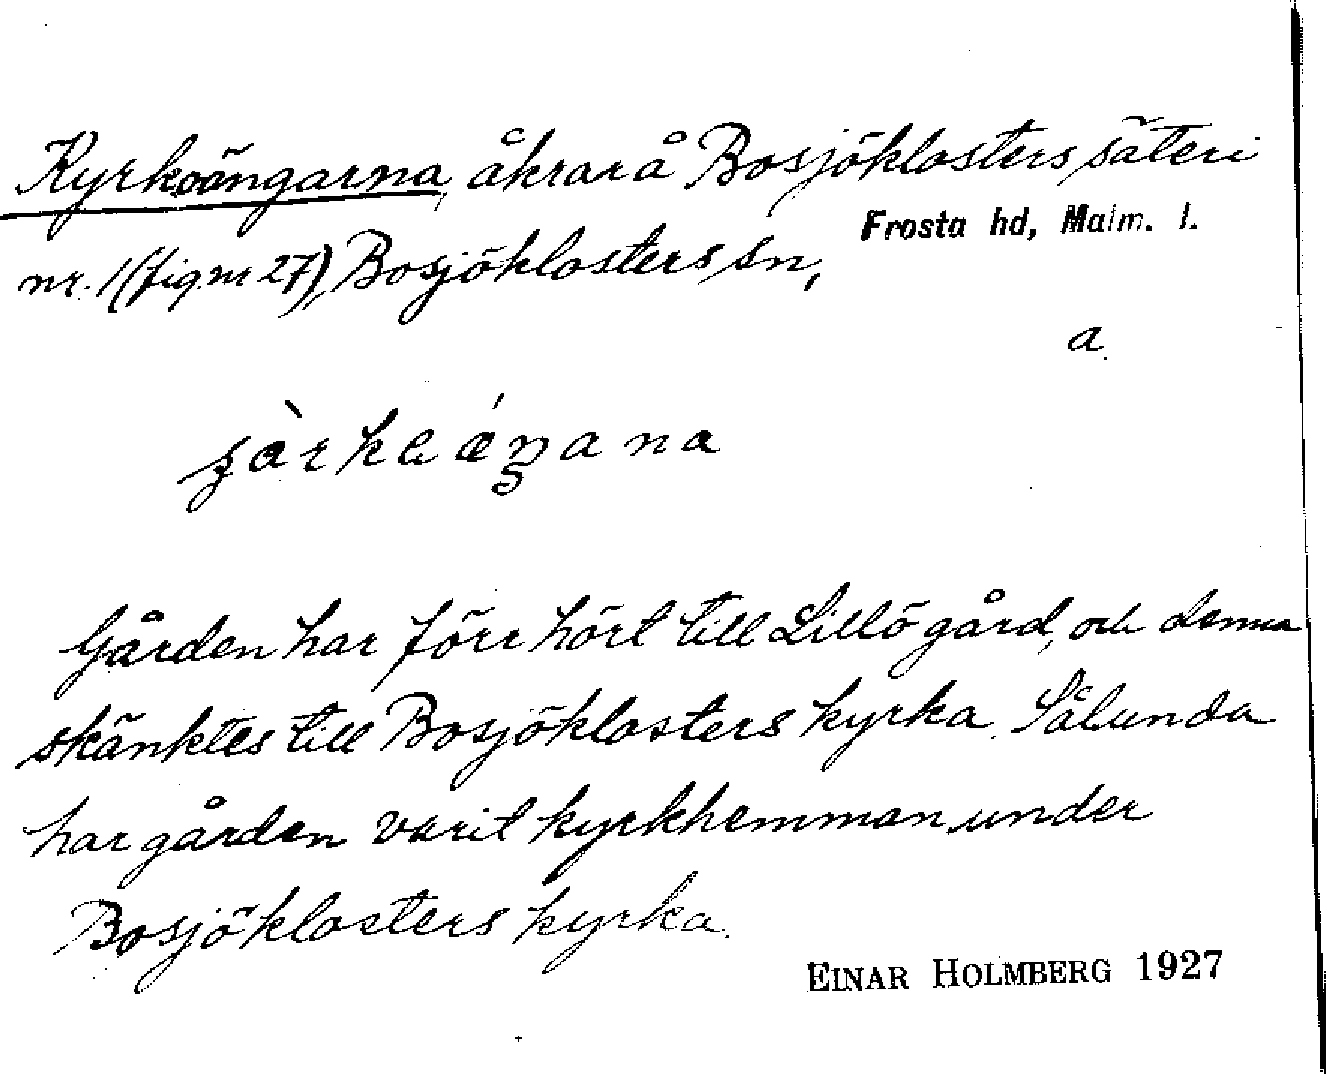 Kyrkoängarna, åkrar å Bosjöklosters säteri
nr. 1 (fig. nr 27), Bosjöklosters sn,
Frosta hd, Malm. l.
a.
Gården har förr hört till Lillö gård, och denna
skänktes till Bosjöklosters kyrka. Sålunda
har gården varit kyrkhemman under
Bosjöklosters kyrka.
EINAR HOLMBERG 1927